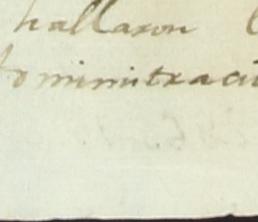 hallaron
dministraci